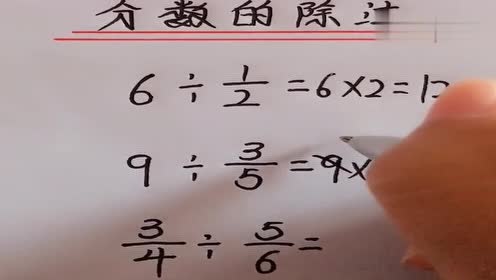 分数的除法
6 ÷ 1/2 = 6×2 = 12
9 ÷ 3/5 = 9×
3/4 ÷ 5/6 =